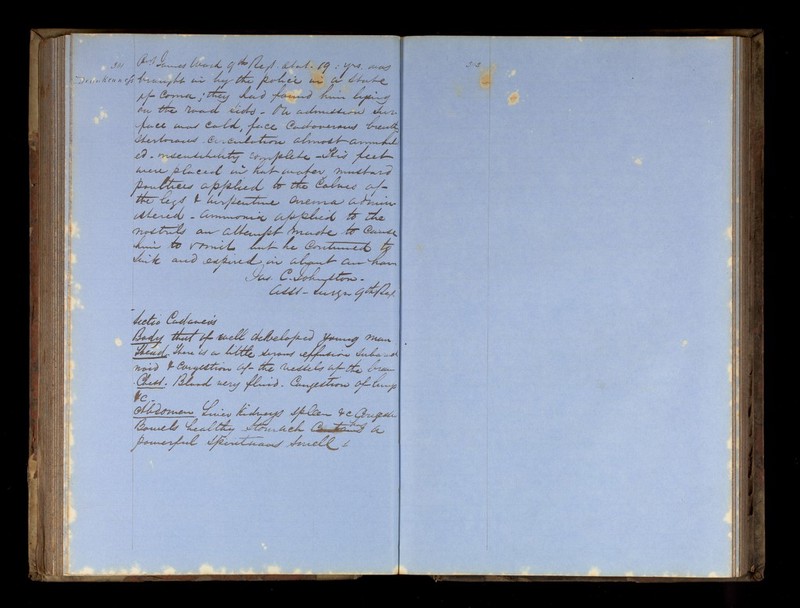 311
Drunkenness
Pt James Ward 9th Regt aetat. 19 : yrs. was
brought in by the police in a state
of Coma ; they had found him lying
on the road side - On admission sur-
face was cold, face Cadaverous breath
Stertorous Circulation almost annihilat
ed - insensibility complete - His feet
were placed in hot water mustard
poultices applied to the Calves of
the legs & turpentine enema admin
istered - Ammonia applied to the
nostrils an attempt made to cause
him to vomit but he Continued to
Sink and expired in about an hour
Jas. C. Johnston -
Asst - Surgn 9th Regt
Sectio Cadaveris
Body that of well developed young man
Head. There is a little serous effusion Subarach
noid & Congestion of the vessels of the brain
Chest. Blood very fluid. Congestion of lungs
&c
Abdomen Liver Kidneys Spleen &c Congested
Bowels healthy Stomach a
powerful Spirituous Smell
312